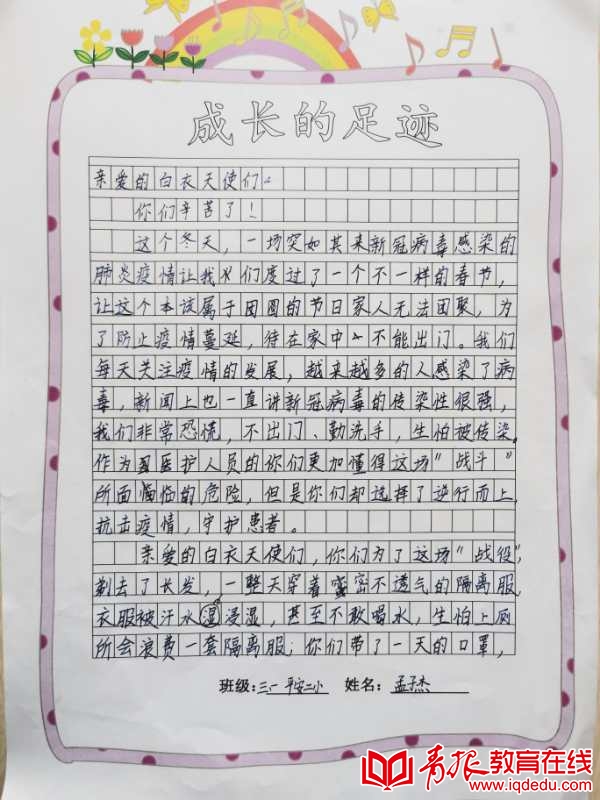 成长的足迹
亲爱的白衣天使们：
你们辛苦了！
这个冬天，一场突如其来新冠病毒感染的
肺炎疫情让我们度过了一个不一样的春节，
让这个本该属于团圆的节日家人无法团聚，为
了防止疫情蔓延，待在家中不能出门。我们
每天关注疫情的发展，越来越多的人感染了病
毒，新闻上也一直讲新冠病毒的传染性很强，
我们非常恐慌，不出门、勤洗手，生怕被传染。
作为医护人员的你们更加懂得这场"战斗"
所面临的危险，但是你们却选择了逆行而上，
抗击疫情，守护患者。
亲爱的白衣天使们，你们为了这场"战役"，
剃去了长发，一整天穿着密不透气的隔离服，
衣服被汗水浸湿，甚至不敢喝水，生怕上厕
所会浪费一套隔离服；你们带了一天的口罩，
班级：三一 平安二小 姓名：孟子杰
青报教育在线
www.iqdedu.com